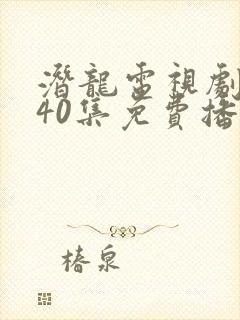 潛龍電視劇
40集免費播
椿泉